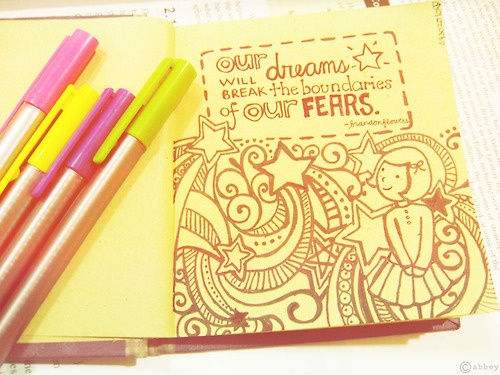 our dreams
WILL
BREAK the boundaries
of our FEARS.
-brandonflowers
©abbey